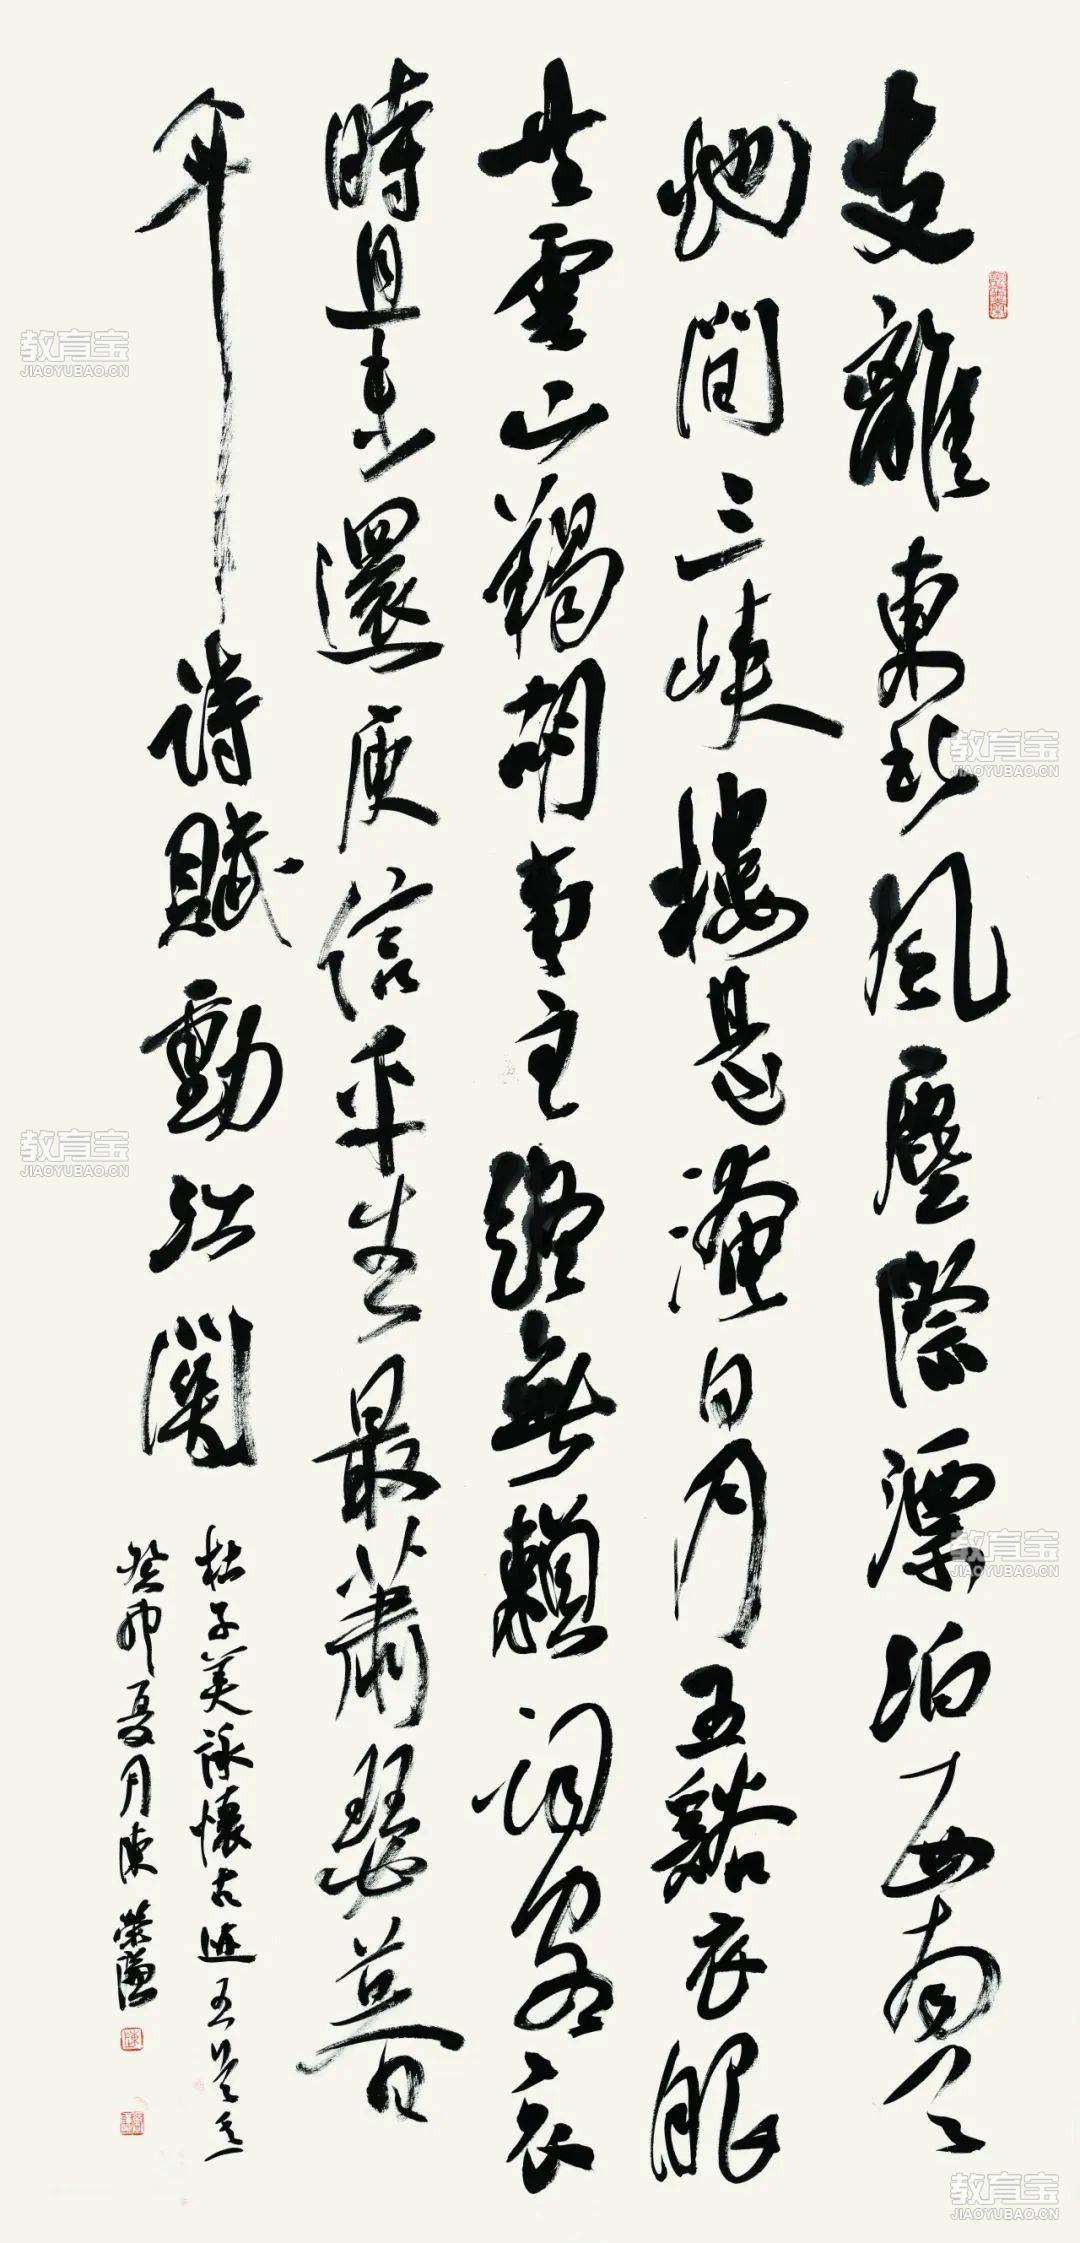 支離東北風塵際漂泊西南天
地間三峽樓臺淹日月五谿衣服
共雲山羯胡事主終無賴詞客哀
時且未還庾信平生最蕭瑟暮
年詩賦動江關
杜子美詠懷古迹五首之一
癸卯夏月陳榮
教育宝
JIAOYUBAO.CN
教育宝
JIAOYUBAO.CN
教育宝
JIAOYUBAO.CN
教育宝
JIAOYUBAO.CN
教育宝
JIAOYUBAO.CN